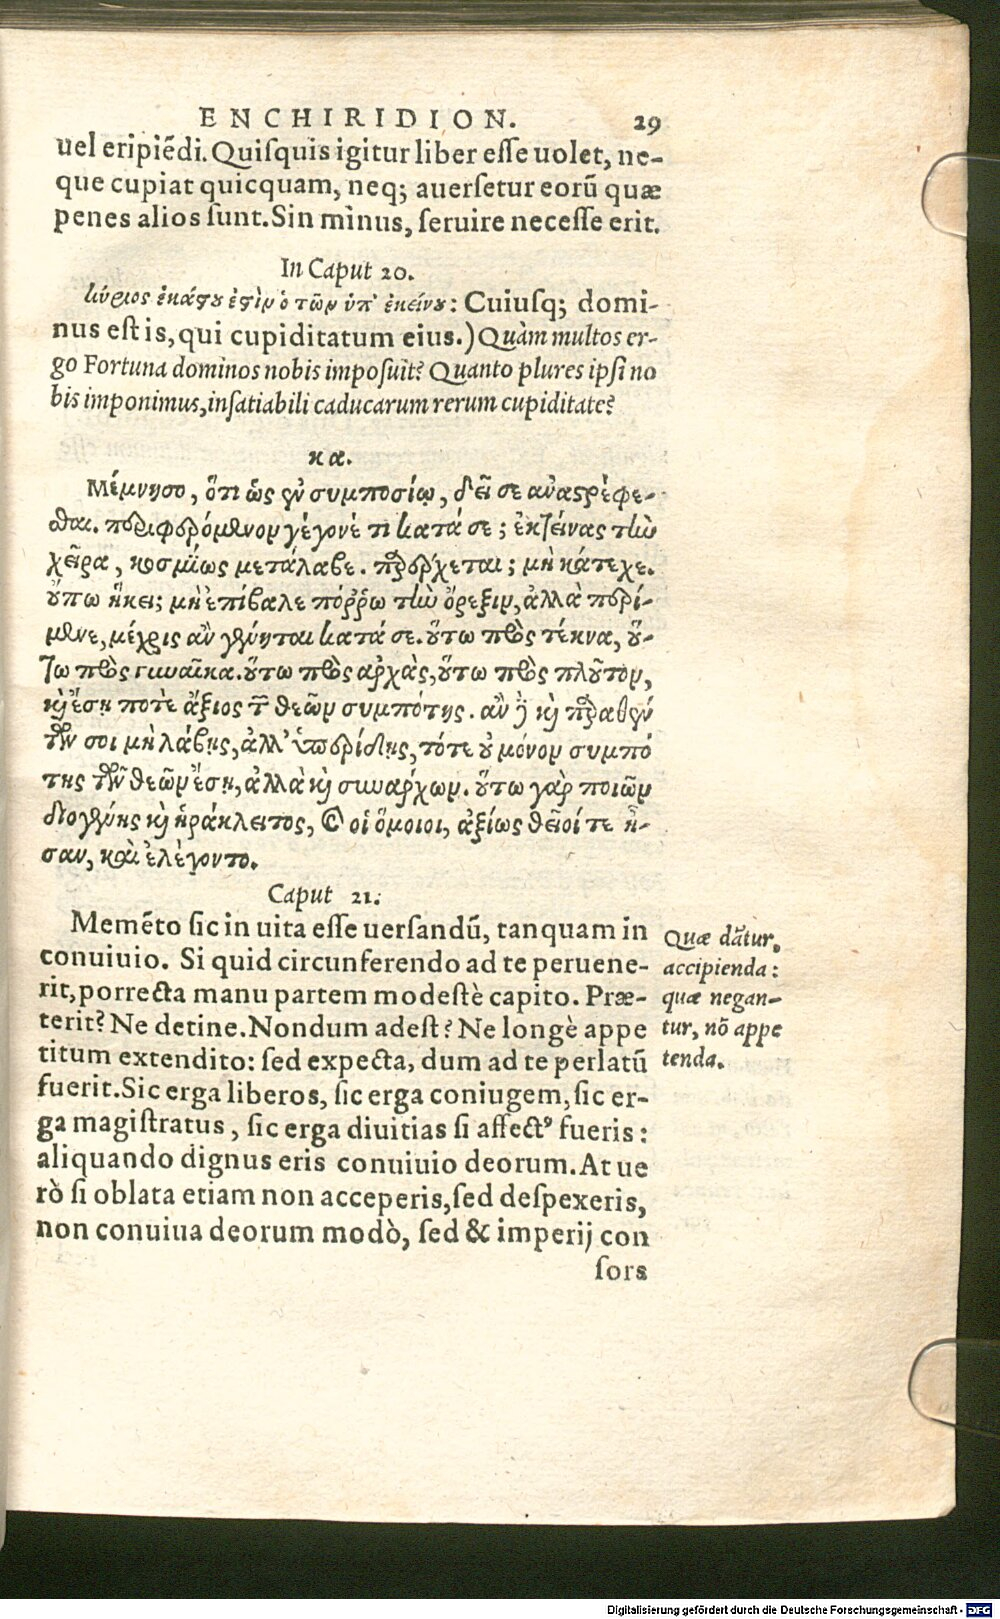 ENCHIRIDION. 29
uel eripiẽdi. Quiſquis igitur liber eſſe uolet, ne-
que cupiat quicquam, neq; auerſetur eorũ quæ
penes alios ſunt. Sin minus, ſeruire neceſſe erit.
In Caput 20.
κύριος ἑκάϛου ἐϛὶν ὁ τῶν ὑπ' ἐκείνου: Cuiuſq; domi-
nus eſt is, qui cupiditatum eius.) Quàm multos er-
go Fortuna dominos nobis impoſuit? Quanto plures ipſi no
bis imponimus, inſatiabili caducarum rerum cupiditate?
κα.
Μέμνησο, ὅτι ὡς ἐν συμποσίῳ, δεῖ σε ἀναϛρέφε-
σθαι. περιφερόμενον γέγονέ τι κατά σε; ἐκτείνας τὴν
χεῖρα, κοσμίως μετάλαβε. παρέρχεται; μὴ κάτεχε.
οὔπω ἥκει; μὴ ἐπίβαλε πόῤῥω τὴν ὄρεξιν, ἀλλὰ περί-
μενε, μέχρις ἂν γένηται κατά σε. οὕτω πρὸς τέκνα, οὕ-
τω πρὸς γυναῖκα. οὕτω πρὸς ἀρχὰς, οὕτω πρὸς πλοῦτον,
καὶ ἔσῃ ποτὲ ἄξιος τῶν θεῶν συμπότης. ἂν δὲ καὶ παραθέν
των σοι μὴ λάβῃς, ἀλλ' ὑπερίδῃς, τότε οὐ μόνον συμπό
της τῶν θεῶν ἔσῃ, ἀλλὰ καὶ συνάρχων. οὕτω γὰρ ποιῶν
διογένης καὶ ἡράκλειτος, καὶ οἱ ὅμοιοι, ἀξίως θεῖοί τε ἦ-
σαν, καὶ ἐλέγοντο.
Caput 21.
Memẽto ſic in uita eſſe uerſandũ, tanquam in
conuiuio. Si quid circunferendo ad te peruene-
rit, porrecta manu partem modeſtè capito. Præ-
terit? Ne detine. Nondum adeſt? Ne longè appe
titum extendito: ſed expecta, dum ad te perlatũ
fuerit. Sic erga liberos, ſic erga coniugem, ſic er-
ga magiſtratus, ſic erga diuitias ſi affectꝰ fueris:
aliquando dignus eris conuiuio deorum. At ue
rò ſi oblata etiam non acceperis, ſed deſpexeris,
non conuiua deorum modò, ſed & imperij con
ſors
Quæ dãtur,
accipienda:
quæ negan-
tur, nõ appe
tenda.
Digitalisierung gefördert durch die Deutsche Forschungsgemeinschaft - DFG